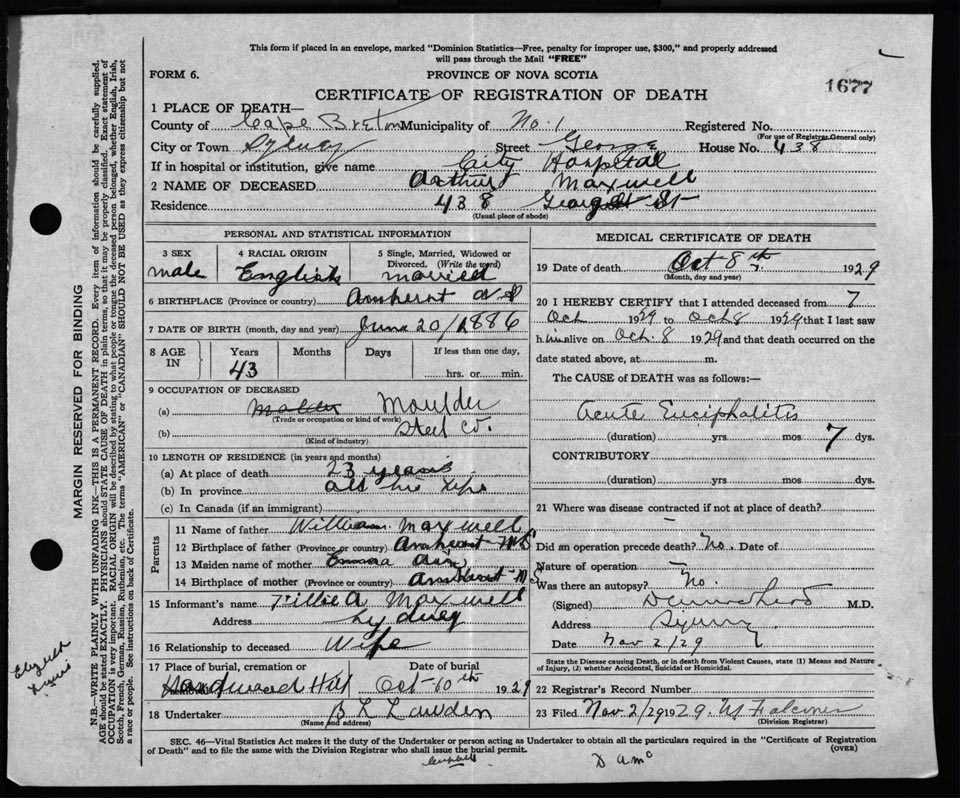 This form if placed in an envelope, marked "Dominion Statistics—Free, penalty for improper use, $300," and properly addressed
will pass through the Mail "FREE"
FORM 6.
PROVINCE OF NOVA SCOTIA
1677
CERTIFICATE OF REGISTRATION OF DEATH
1 PLACE OF DEATH—
County of Cape Breton Municipality of No. 1 Registered No.
(For use of Registrar General only)
City or Town Sydney Street George House No. 438
If in hospital or institution, give name City Hospital
2 NAME OF DECEASED Arthur Maxwell
Residence 438 George St
(Usual place of abode)
PERSONAL AND STATISTICAL INFORMATION
3 SEX male
4 RACIAL ORIGIN English
5 Single, Married, Widowed or Divorced. (Write the word) married
6 BIRTHPLACE (Province or country) Amherst N S
7 DATE OF BIRTH (month, day and year) June 20/1886
8 AGE IN Years Months Days If less than one day,
43 hrs. or min.
9 OCCUPATION OF DECEASED
(a) Moulder
(Trade or occupation or kind of work)
(b) Steel Co.
(Kind of industry)
10 LENGTH OF RESIDENCE (in years and months)
(a) At place of death 23 years
(b) In province all his life
(c) In Canada (if an immigrant)
Parents
11 Name of father William Maxwell
12 Birthplace of father (Province or country) Amherst N S
13 Maiden name of mother Emma
14 Birthplace of mother (Province or country) Amherst N S
15 Informant's name Tillie A Maxwell
Address Sydney
16 Relationship to deceased Wife
17 Place of burial, cremation or Date of burial
Hardwood Hill Oct 10th 1929
18 Undertaker B L Lowden
(Name and address)
MEDICAL CERTIFICATE OF DEATH
19 Date of death Oct 8th 1929
(Month, day and year)
20 I HEREBY CERTIFY that I attended deceased from 7
Oct 1929 to Oct 8 1929 that I last saw
him alive on Oct. 8 1929 and that death occurred on the
date stated above, at m.
The CAUSE of DEATH was as follows:—
Acute Enciphalitis
(duration) yrs mos 7 dys.
CONTRIBUTORY
(duration) yrs. mos. dys.
21 Where was disease contracted if not at place of death?
Did an operation precede death? No. Date of
Nature of operation
Was there an autopsy? No.
(Signed) M.D.
Address Sydney
Date Nov 2/29
State the Disease causing Death, or in death from Violent Causes, state (1) Means and Nature
of Injury, (2) whether Accidental, Suicidal or Homicidal.
22 Registrar's Record Number
23 Filed Nov 2/29 1929.
(Division Registrar)
SEC. 46—Vital Statistics Act makes it the duty of the Undertaker or person acting as Undertaker to obtain all the particulars required in the "Certificate of Registration
of Death" and to file the same with the Division Registrar who shall issue the burial permit.
(OVER)
MARGIN RESERVED FOR BINDING
N.B.—WRITE PLAINLY WITH UNFADING INK—THIS IS A PERMANENT RECORD. Every item of information should be carefully supplied.
AGE should be stated EXACTLY. PHYSICIANS should STATE CAUSE OF DEATH in plain terms, so that it may be properly classified. Exact statement of
OCCUPATION is very important. RACIAL ORIGIN will be described by stating to what people or tongue the deceased person belonged, whether English, Irish,
Scotch, French, German, Russian, Ruthenian, etc. The terms "AMERICAN" or "CANADIAN" SHOULD NOT BE USED as they express citizenship but not
a race or people. See instructions on back of Certificate.